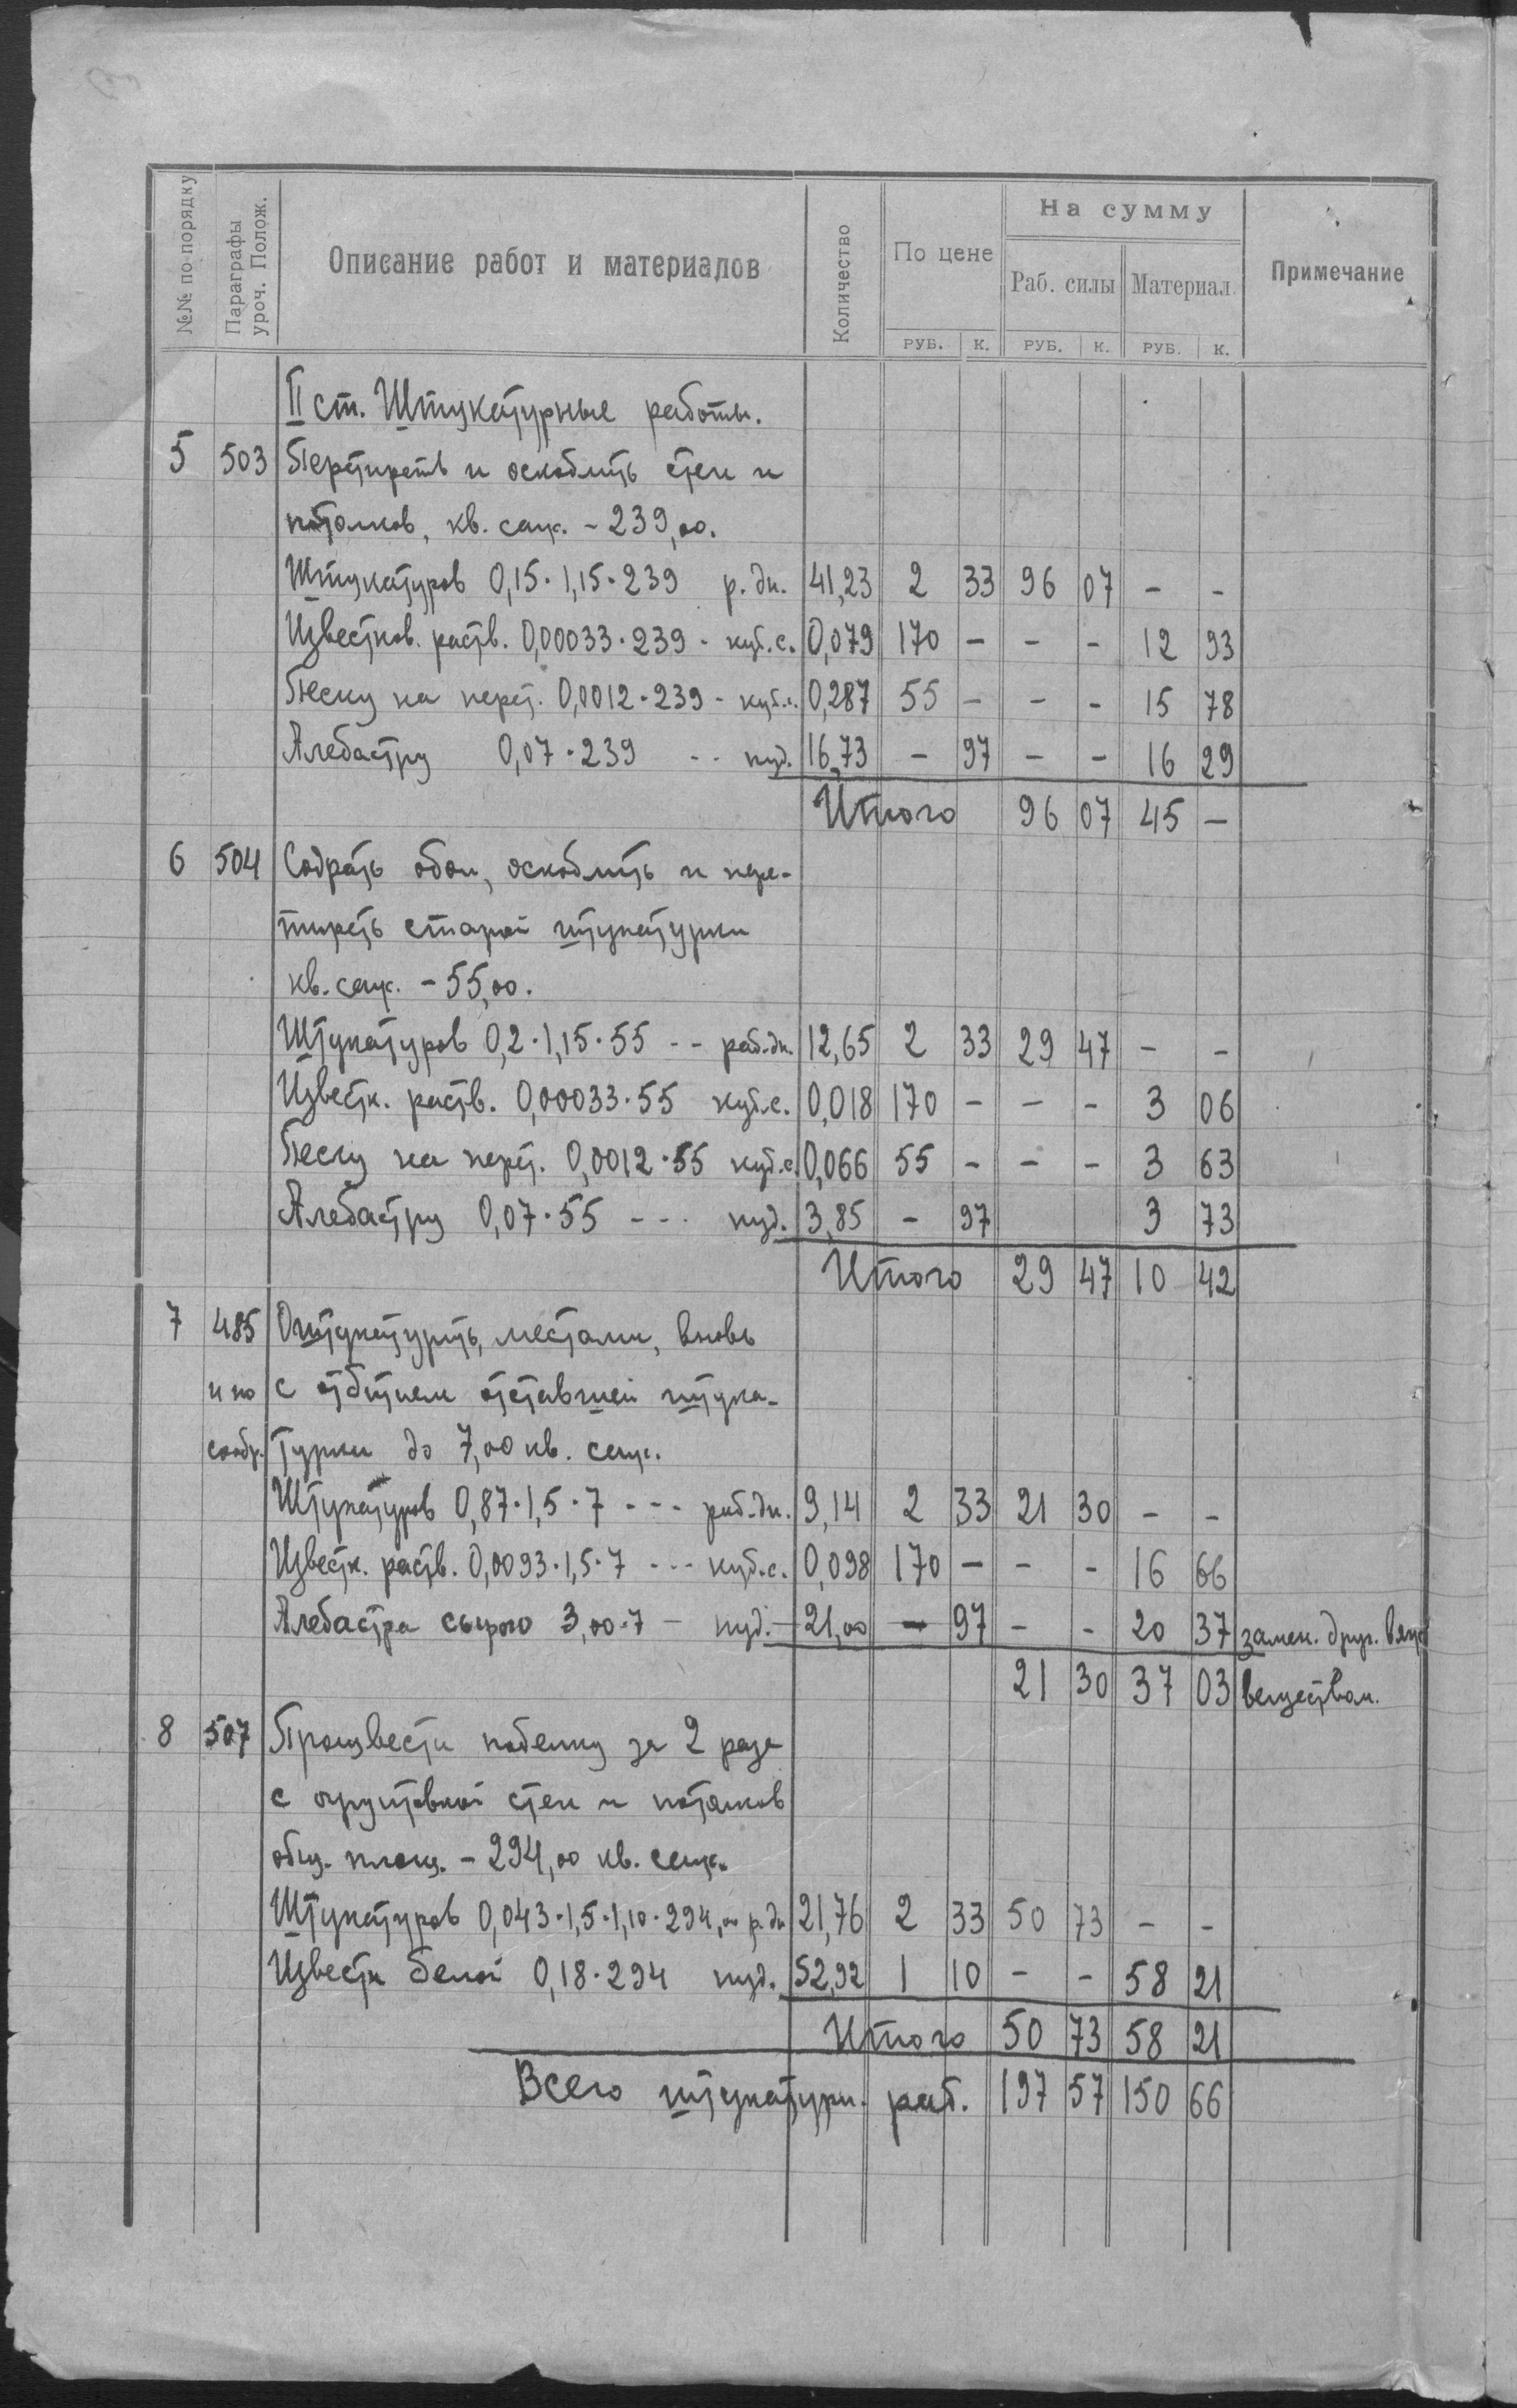 №№ по порядку
Параграфы уроч. Полож.
Описание работ и материалов
Количество
По цене
На сумму
Раб. силы
Материал.
Примечание
РУБ. К. РУБ. К. РУБ. К.
II ст. Штукатурные работы.
5 503 Перетиреть и оскоблить стен и
потолков, кв. саж. - 239,00.
Штукатуров 0,15·1,15·239 р. дн. 41,23 2 33 96 07 - -
Известков. раств. 0,00033·239 - куб. с. 0,079 170 - - - 12 93
Песку на перет. 0,0012·239 - куб. с. 0,287 55 - - - 15 78
Алебастру 0,07·239 - - пуд. 16,73 - 97 - - 16 29
Итого 96 07 45 -
6 504 Содрать обои, оскоблить и пере-
тиреть старой штукатурки
кв. саж. - 55,00.
Штукатуров 0,2·1,15·55 - - раб. дн. 12,65 2 33 29 47 - -
Известк. раств. 0,00033·55 куб. с. 0,018 170 - - - 3 06
Песку на перет. 0,0012·55 куб. с. 0,066 55 - - - 3 63
Алебастру 0,07·55 - - - пуд. 3,85 - 97 3 73
Итого 29 47 10 42
7 485 Оштукатурить, местами, вновь
и по с отбитием отставшей штука-
сообр. турки до 7,00 кв. саж.
Штукатуров 0,87·1,5·7 - - - раб. дн. 9,14 2 33 21 30 - -
Известк. раств. 0,0093·1,5·7 - - - куб. с. 0,098 170 - - - 16 66
Алебастра сырого 3,00·7 - пуд. - 21,00 - 97 - - 20 37 замен. друг. вяж
21 30 37 03 веществом.
8 507 Произвести побелку за 2 раза
с огрунтовкой стен и потолков
общ. площ. - 294,00 кв. саж.
Штукатуров 0,043·1,5·1,10·294,00 р. дн 21,76 2 33 50 73 - -
Извести белой 0,18·294 пуд. 52,92 1 10 - - 58 21
Итого 50 73 58 21
Всего штукатурн. раб. 197 57 150 66